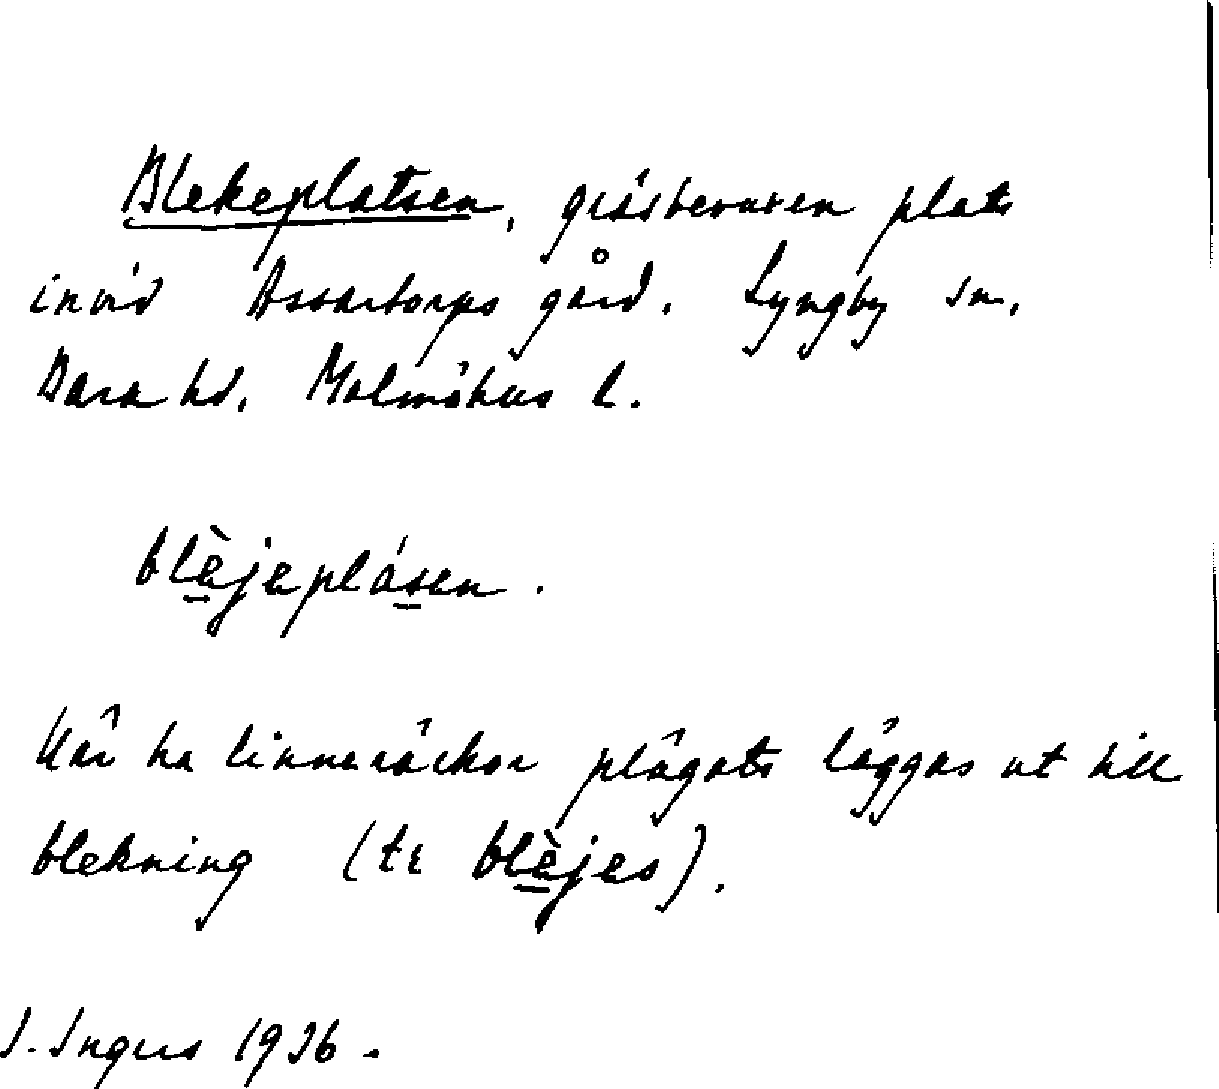 Blekeplatsen, gräsbevuxen plats
invid Assartorps gård. Lyngby sn.
Bara hd. Malmöhus l.
blèjeplásen.
Här ha linneväckor plägats läggas ut till
blekning (te blèjes).
I. Ingers 1936.